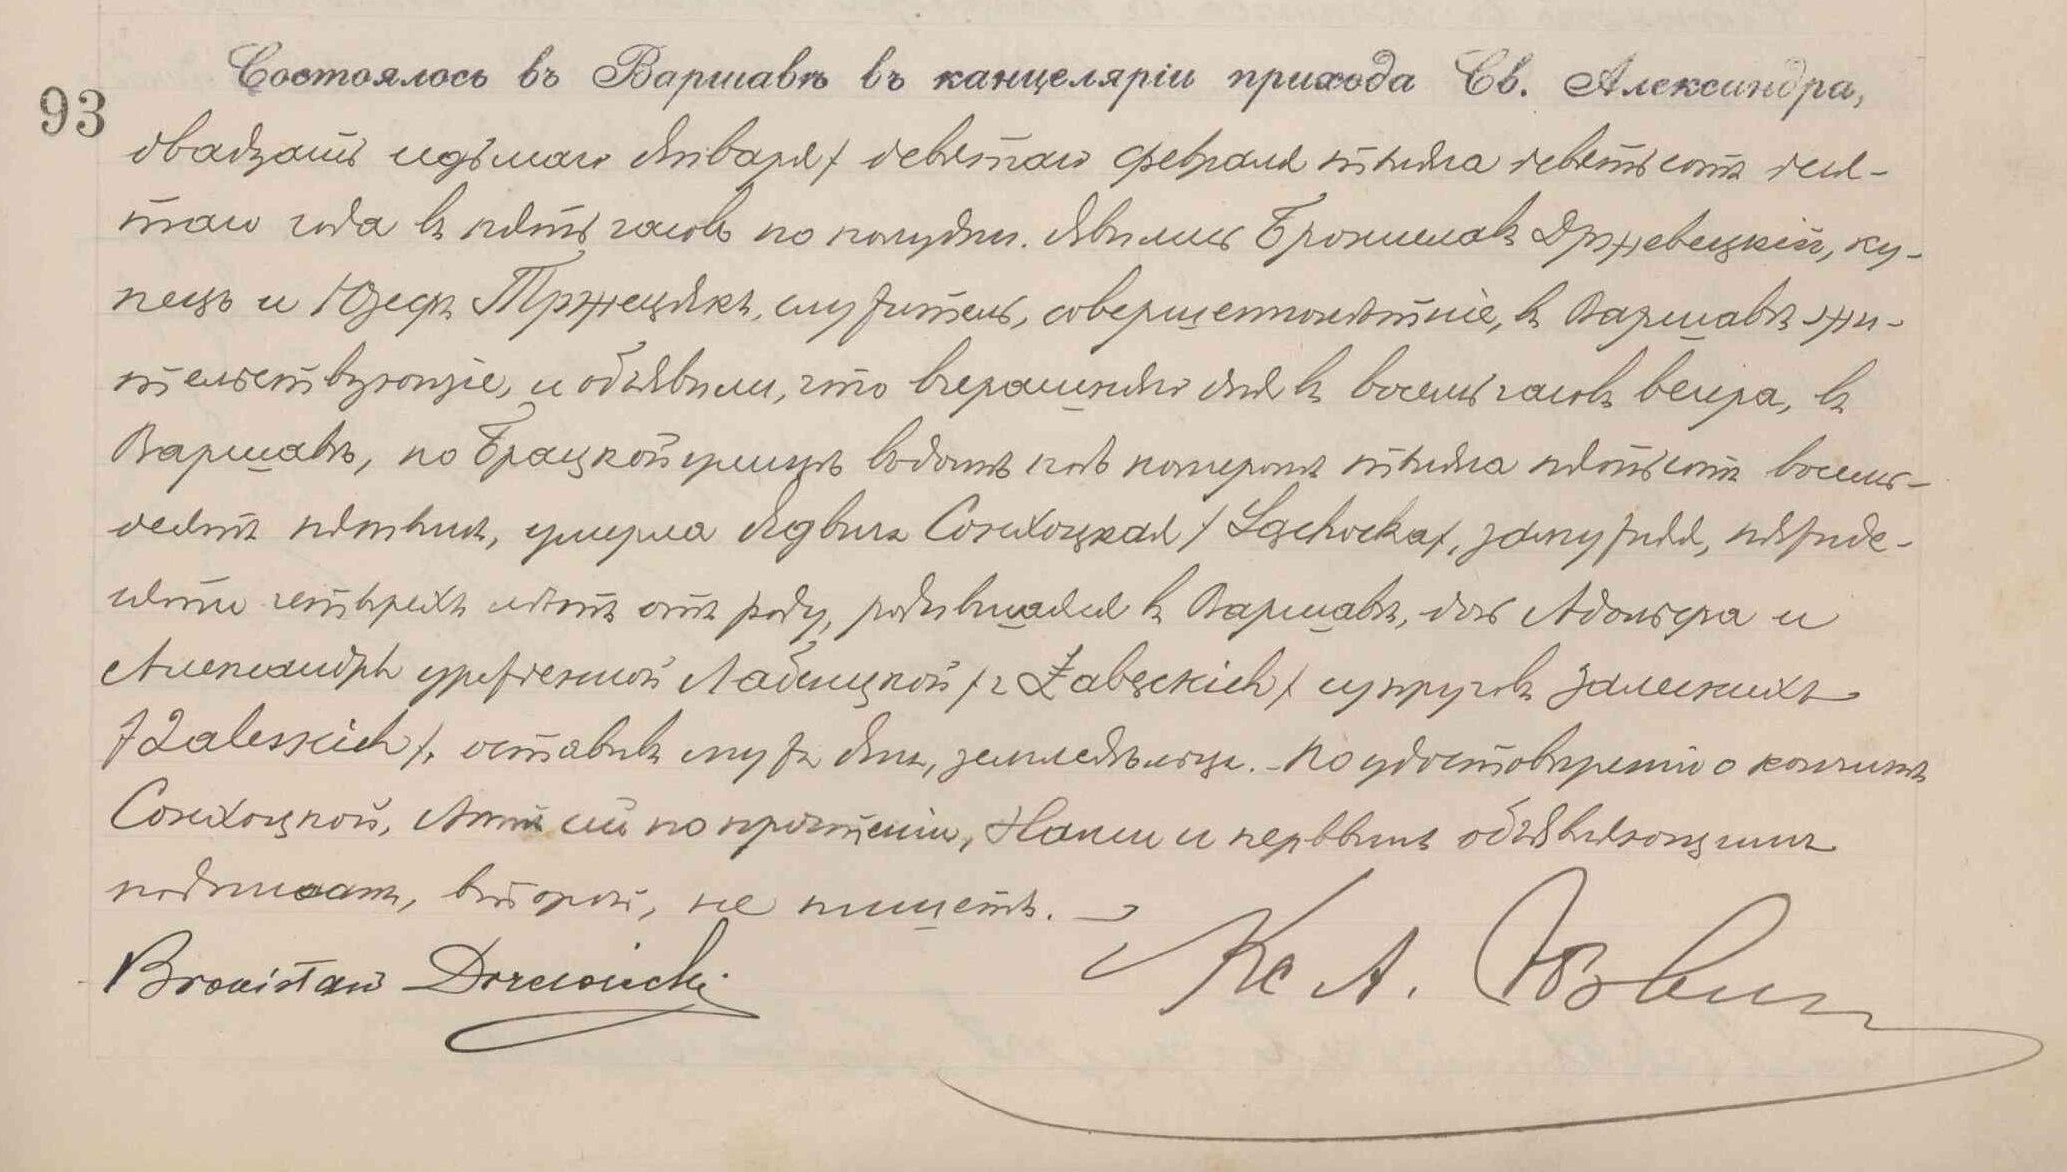 Состоялось въ Варшавѣ въ канцеляріи прихода Св. Александра,
93
двадцать седьмаго Января / девятаго Февраля тысяча девятьсотъ деся-
таго года въ пять часовъ по полудни. Явились Брониславъ Држевецкій, ку-
пецъ и Юзефъ Тржецякъ, служитель, совершеннолѣтніе, въ Варшавѣ жи-
тельствующіе, и объявили, что вчерашняго дня въ восемь часовъ вечера, въ
Варшавѣ, по Брацкой улицѣ въ домѣ подъ номеромъ тысяча пятьсотъ восемь-
десятъ пятымъ, умерла Ядвига Сохоцкая / Sochocka /, замужняя, пятьде-
сяти четырехъ лѣтъ отъ роду, родившаяся въ Варшавѣ, дочь Адольфа и
Александры урожденной Лабенцкой / z Łabęckich / супруговъ Залескихъ
/ Zaleskich /. оставивъ мужа Яна, земледѣльца. - По удостовѣреніи о кончинѣ
Сохоцкой, Актъ сей по прочтеніи, Нами и первымъ объявляющимъ
подписанъ, второй, не пишетъ.
Bronisław Drzewiecki
Кс А.